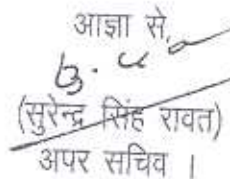 आज्ञा से,
(सुरेन्द्र सिंह रावत)
अपर सचिव ।